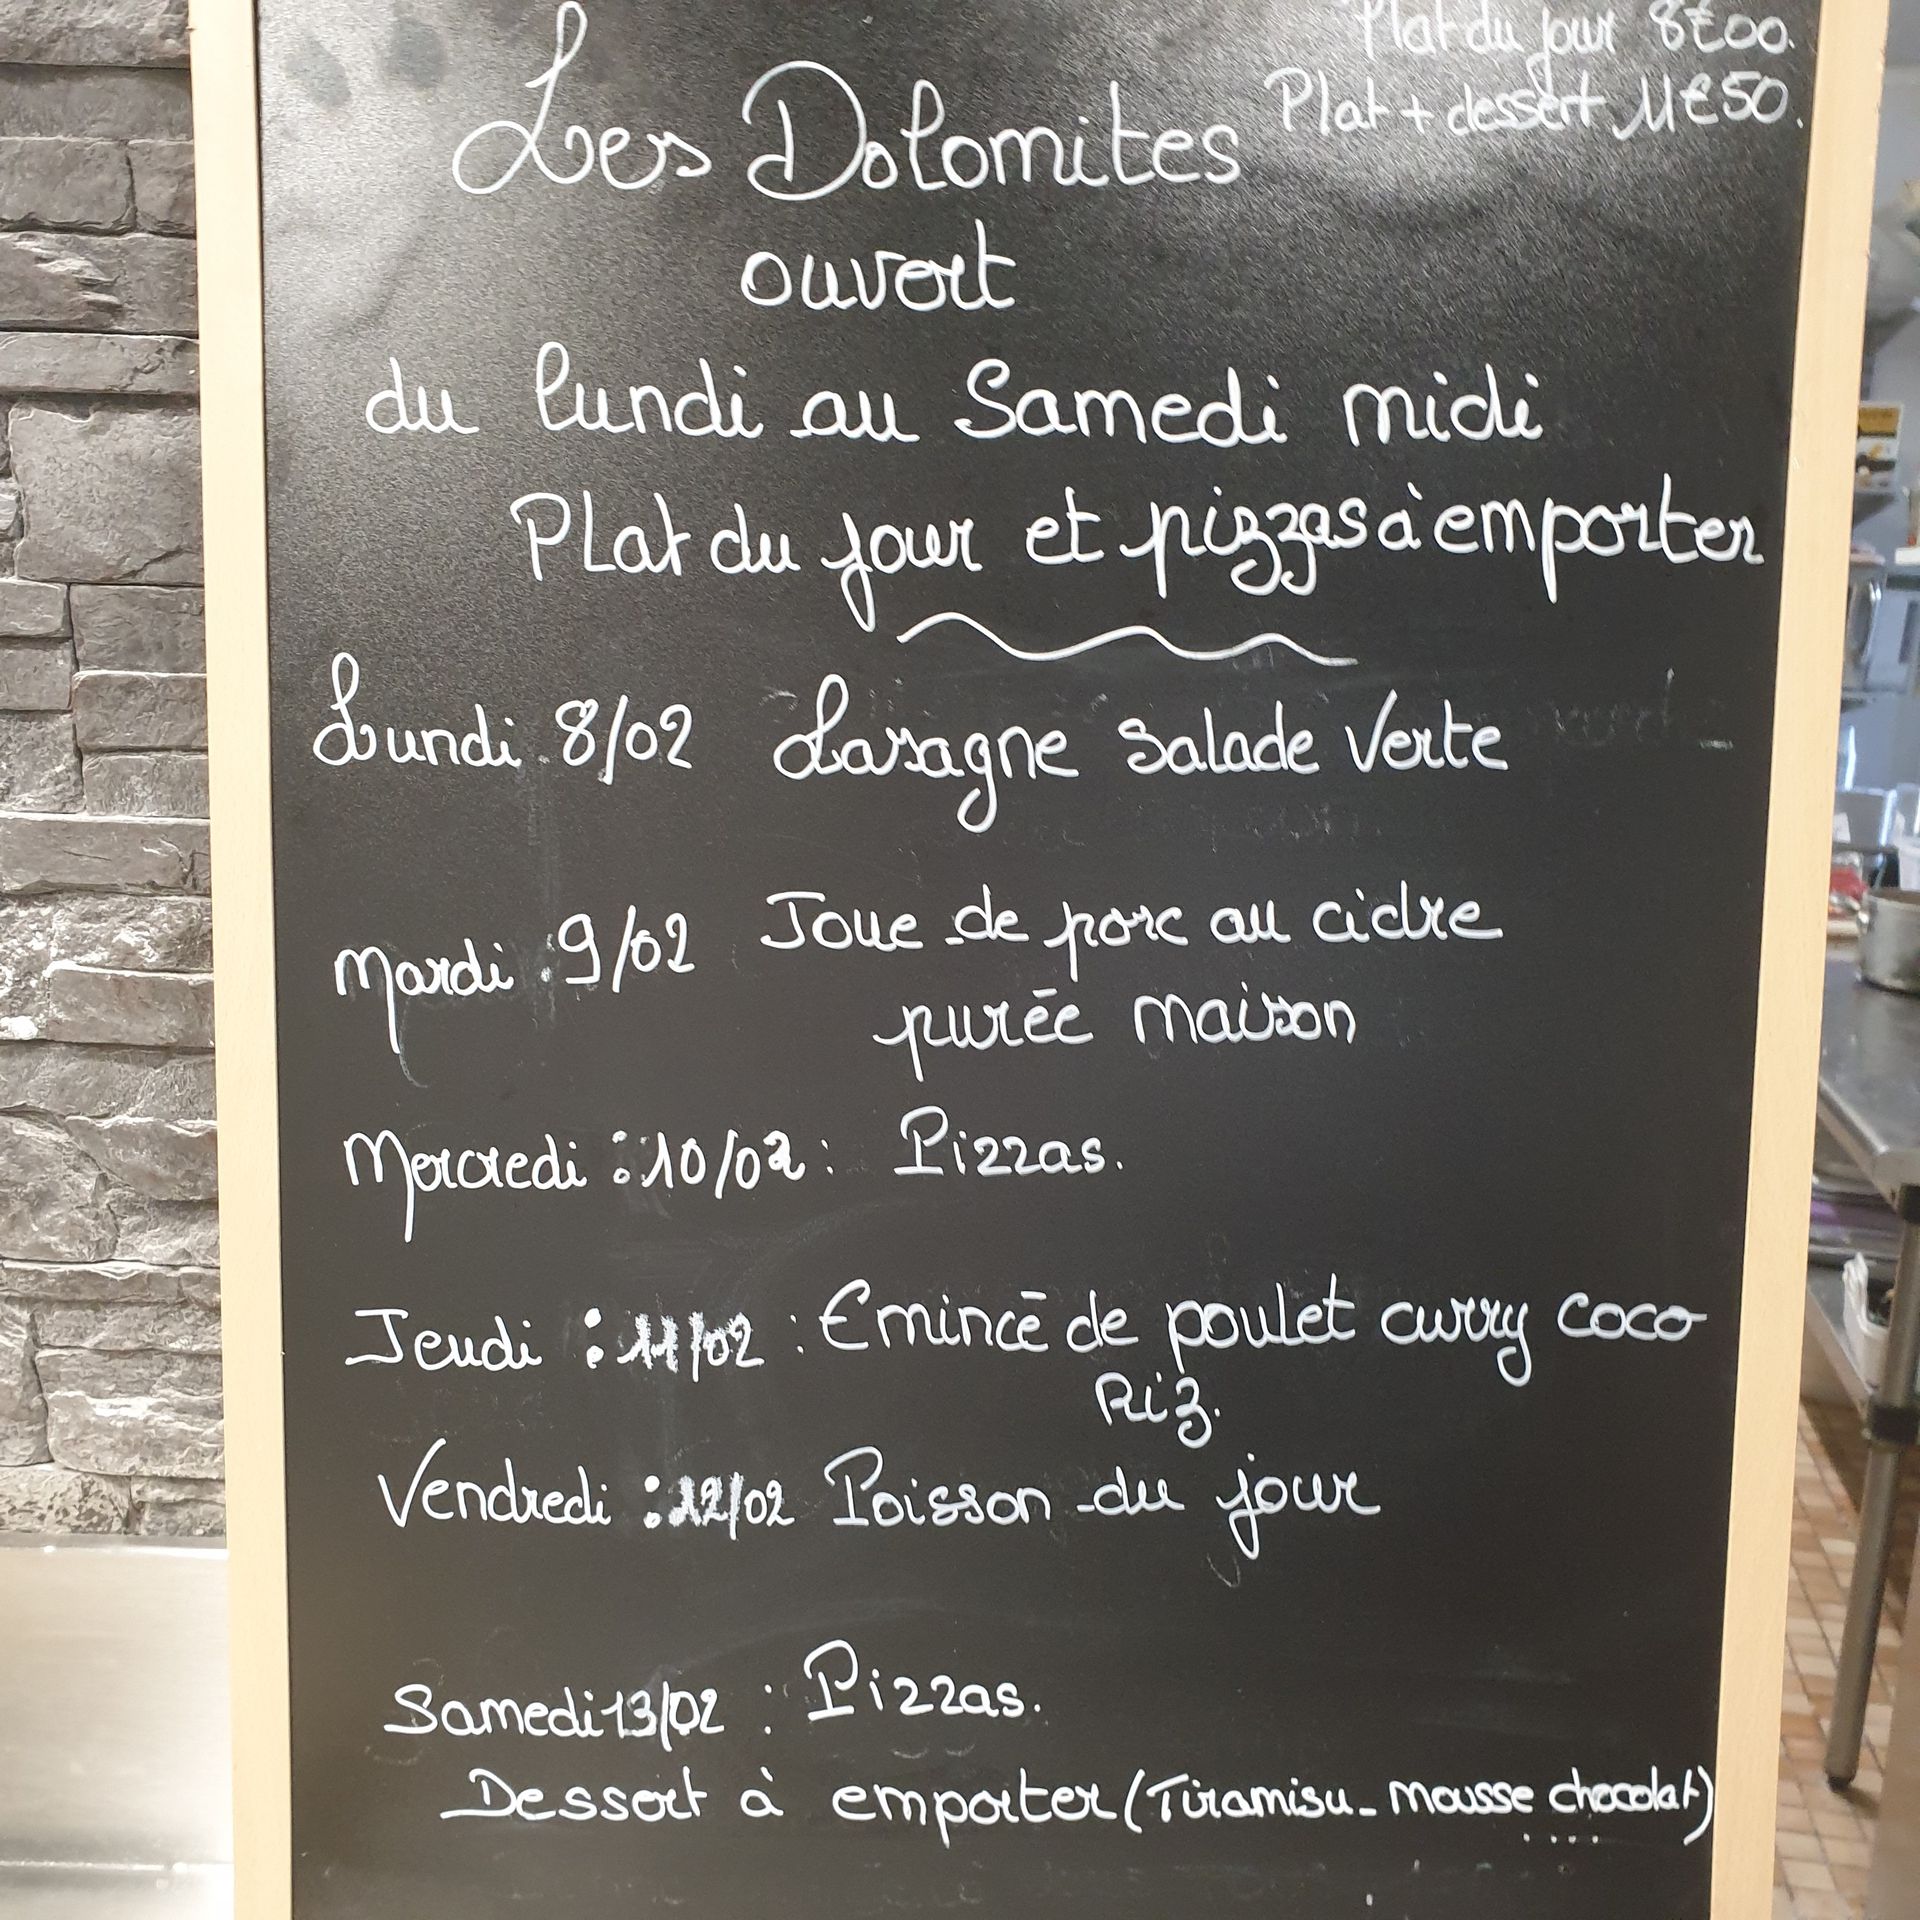 Plat du jour 8€00.
Plat + dessert 11€50.
Les Dolomites
ouvert
du lundi au Samedi midi
Plat du jour et pizzas à emporter
Lundi 8/02 Lasagne Salade Verte
Mardi 9/02 Joue de porc au cidre
purée maison
Mercredi : 10/02 : Pizzas.
Jeudi : 11/02 : Emincé de poulet curry coco
Riz.
Vendredi : 12/02 Poisson du jour
Samedi 13/02 : Pizzas.
Dessert à emporter (Tiramisu - mousse chocolat)
....